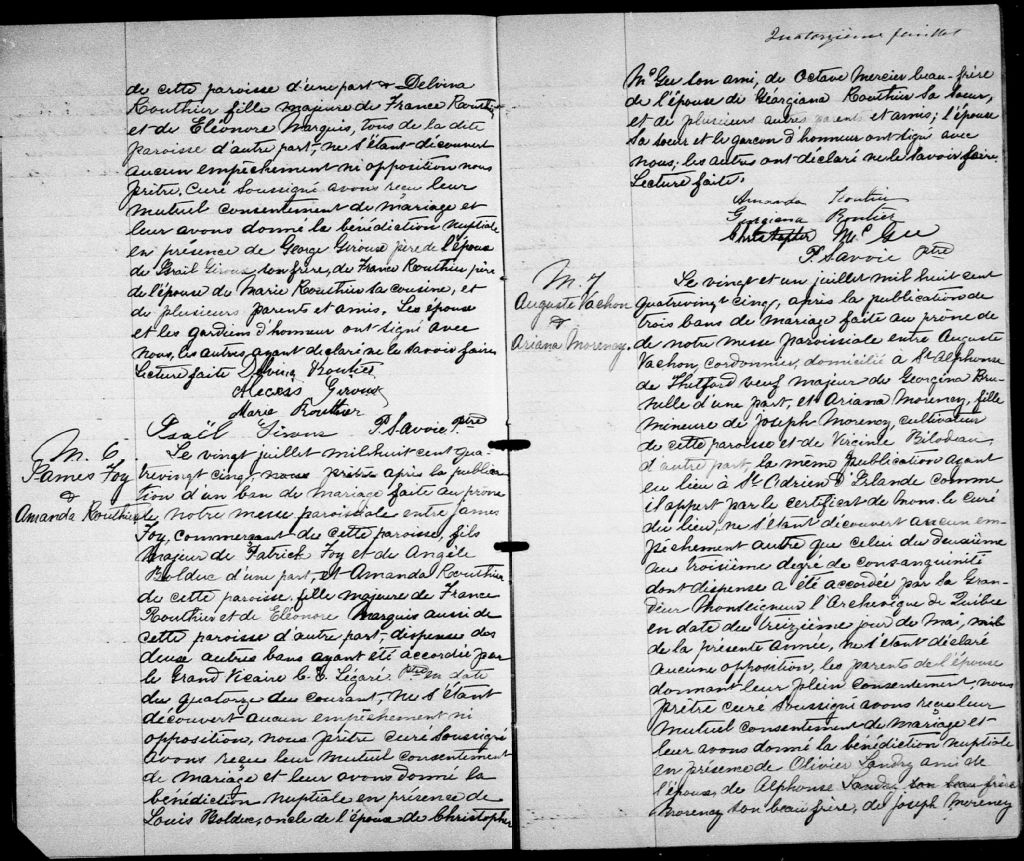 de cette paroisse d'une part & Delvina
Routhier fille majeure de France Routhier
et de Eléonore Marquis, tous de la dite
paroisse d'autre part, ne s'étant découvert
aucun empêchement ni opposition nous
prêtre, curé soussigné avons reçu leur
mutuel consentement de mariage et
leur avons donné la bénédiction nuptiale
en présence de George Giroux père de l'époux
de Israïl Giroux, son frère, de France Routhier père
de l'épouse de Marie Routhier sa cousine, et
de plusieurs parents et amis. Les époux
et les gardiens d'honneur ont signé avec
nous, les autres ayant déclaré ne le savoir faire
Lecture faite Delvina Routier
Giroux
Marie Routhier
Israël Giroux P Savoie Ptre
M. 6.
James Foy
&
Amanda Routhier
Le vingt juillet mil huit cent qua-
trevingt cinq, nous prêtre après la publica-
tion d'un ban de mariage faite au prône
de notre messe paroissiale entre James
Foy, commerçant de cette paroisse, fils
majeur de Patrick Foy et de Angèle
Bolduc d'une part, et Amanda Routhier
de cette paroisse, fille majeure de France
Routhier et de Eléonore Marquis aussi de
cette paroisse d'autre part, dispense des
deux autres bans ayant été accordée par
le Grand Vicaire C. E. Légaré, Ptre en date
du quatorze du courant, ne s'étant
découvert aucun empêchement ni
opposition, nous prêtre curé soussigné
avons reçu leur mutuel consentement
de mariage et leur avons donné la
bénédiction nuptiale en présence de
Louis Bolduc, oncle de l'époux de Christopher
Quatorzième feuillet
Mc Gee son ami, de Octave Mercier beau-frère
de l'épouse de Géorgiana Routhier sa soeur,
et de plusieurs autres parents et amis; l'épouse
sa soeur et le garçon d'honneur ont signé avec
nous; les autres ont déclaré ne le savoir faire.
Lecture faite.
Amanda Routier
Georgiana Routier
Christopher Mc Gee
P Savoie Ptre
M. 7
Auguste Vachon
&
Ariana Morency
Le vingt et un juillet mil huit cent
quatrevingt cinq, après la publication de
trois bans de mariage faite au prône
de notre messe paroissiale entre Auguste
Vachon, cordonnier, domicilié à St Alphonse
de Thetford veuf majeur de Georgina Bru-
nelle d'une part, et Ariana Morency, fille
mineure de Joseph Morency, cultivateur
de cette paroisse et de Virginie Bilodeau
d'autre part, la même publication ayant
eu lieu à St Adrien d'Irlande comme
il appert par le certificat de Mons. le curé
du lieu, ne s'étant découvert aucun em-
pêchement autre que celui du deuxième
au troisième degré de consanguinité
dont dispense a été accordée par sa Gran-
deur Monseigneur l'Archevêque de Québec
en date du treizième jour de mai, mil
de la présente année, ne s'étant déclaré
aucune opposition, les parents de l'épouse
donnant leur plein consentement, nous
prêtre curé soussigné avons reçu leur
mutuel consentement de mariage et
leur avons donné la bénédiction nuptiale
en présence de Olivier Landry ami de
l'époux, de Alphonse Landry son beau frère
Morency son beau frère, de Joseph Morency